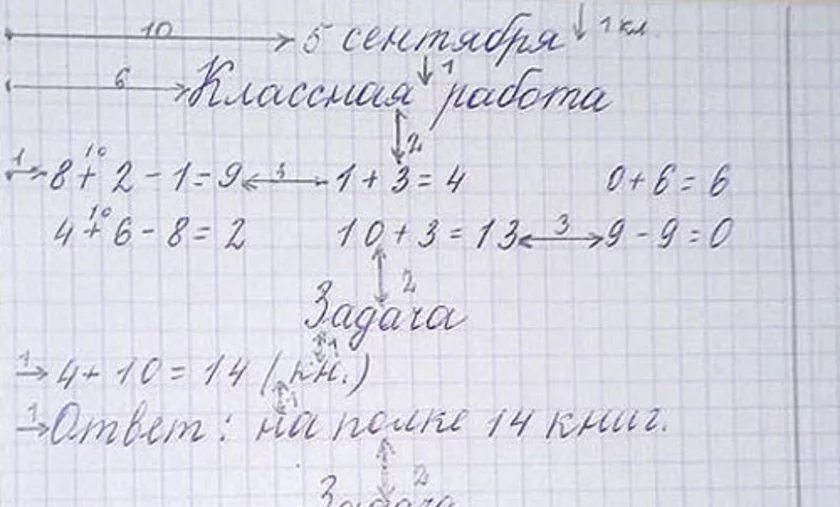 10 5 сентября 1 кл.
6 Классная 1 работа
2
1 8 + 2 - 1 = 9 3 1 + 3 = 4 0 + 6 = 6
10
4 + 6 - 8 = 2 10 + 3 = 13 3 9 - 9 = 0
10
2
Задача
1
1 4 + 10 = 14 (кн.)
1
1 Ответ: на полке 14 книг.
2
Задача